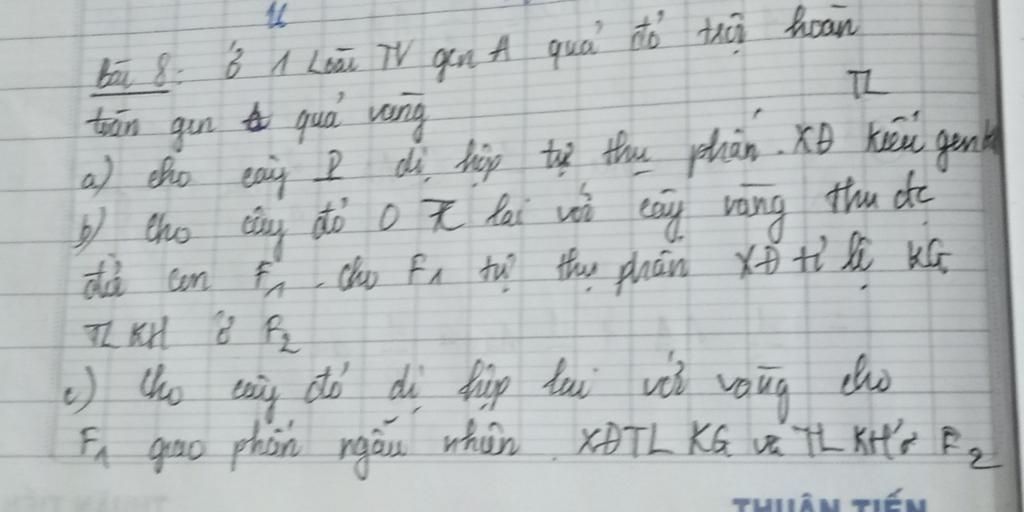 Bài 8: Ở 1 Loài TV gen A quả đỏ trội hoàn
TL
toàn gen a quả vàng
a) cho cây P dị hợp tự thụ phấn. XĐ kiểu gen
b) Cho cây đỏ 0 TC lai với cây vàng thu đc
đời con F1. Cho F1 tự thụ phấn XĐ tỉ lệ KG
TLKH ở F2
c) Cho cây đỏ dị hợp lai với vàng cho
F1 giao phấn ngẫu nhiên. XĐTL KG và TL KH ở F2
THUẬN TIẾN